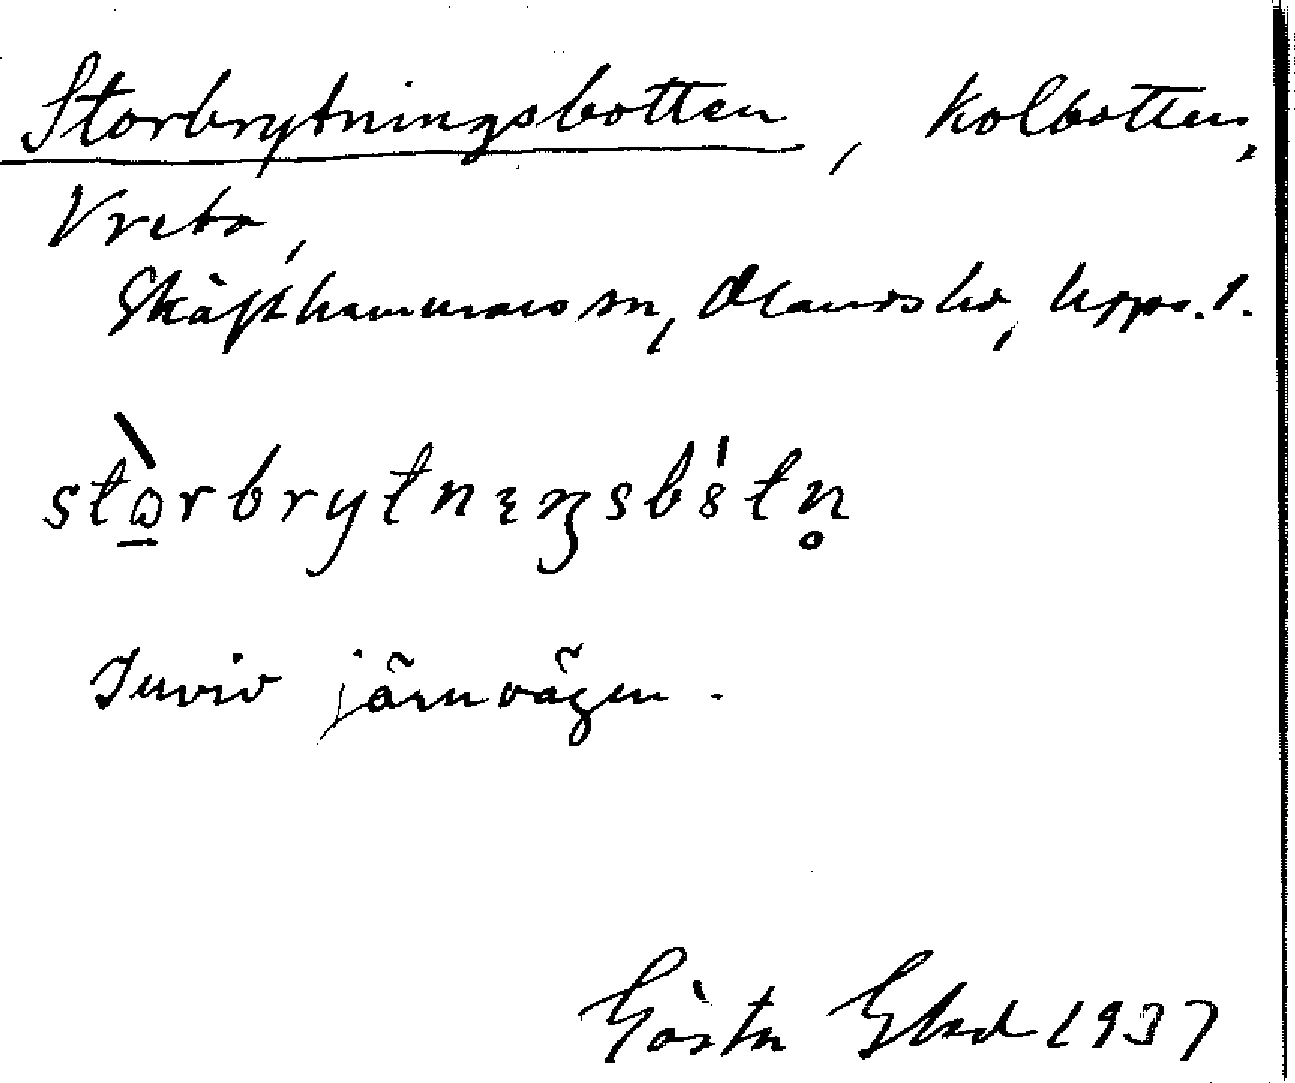 Storbrytningsbotten, kolbotten,
Vreta,
Skäfthammars sn, Olands hd, Upps. l.
stòrbrytnıŋsbótn̥
Invid järnvägen.
Gösta Ekad 1937